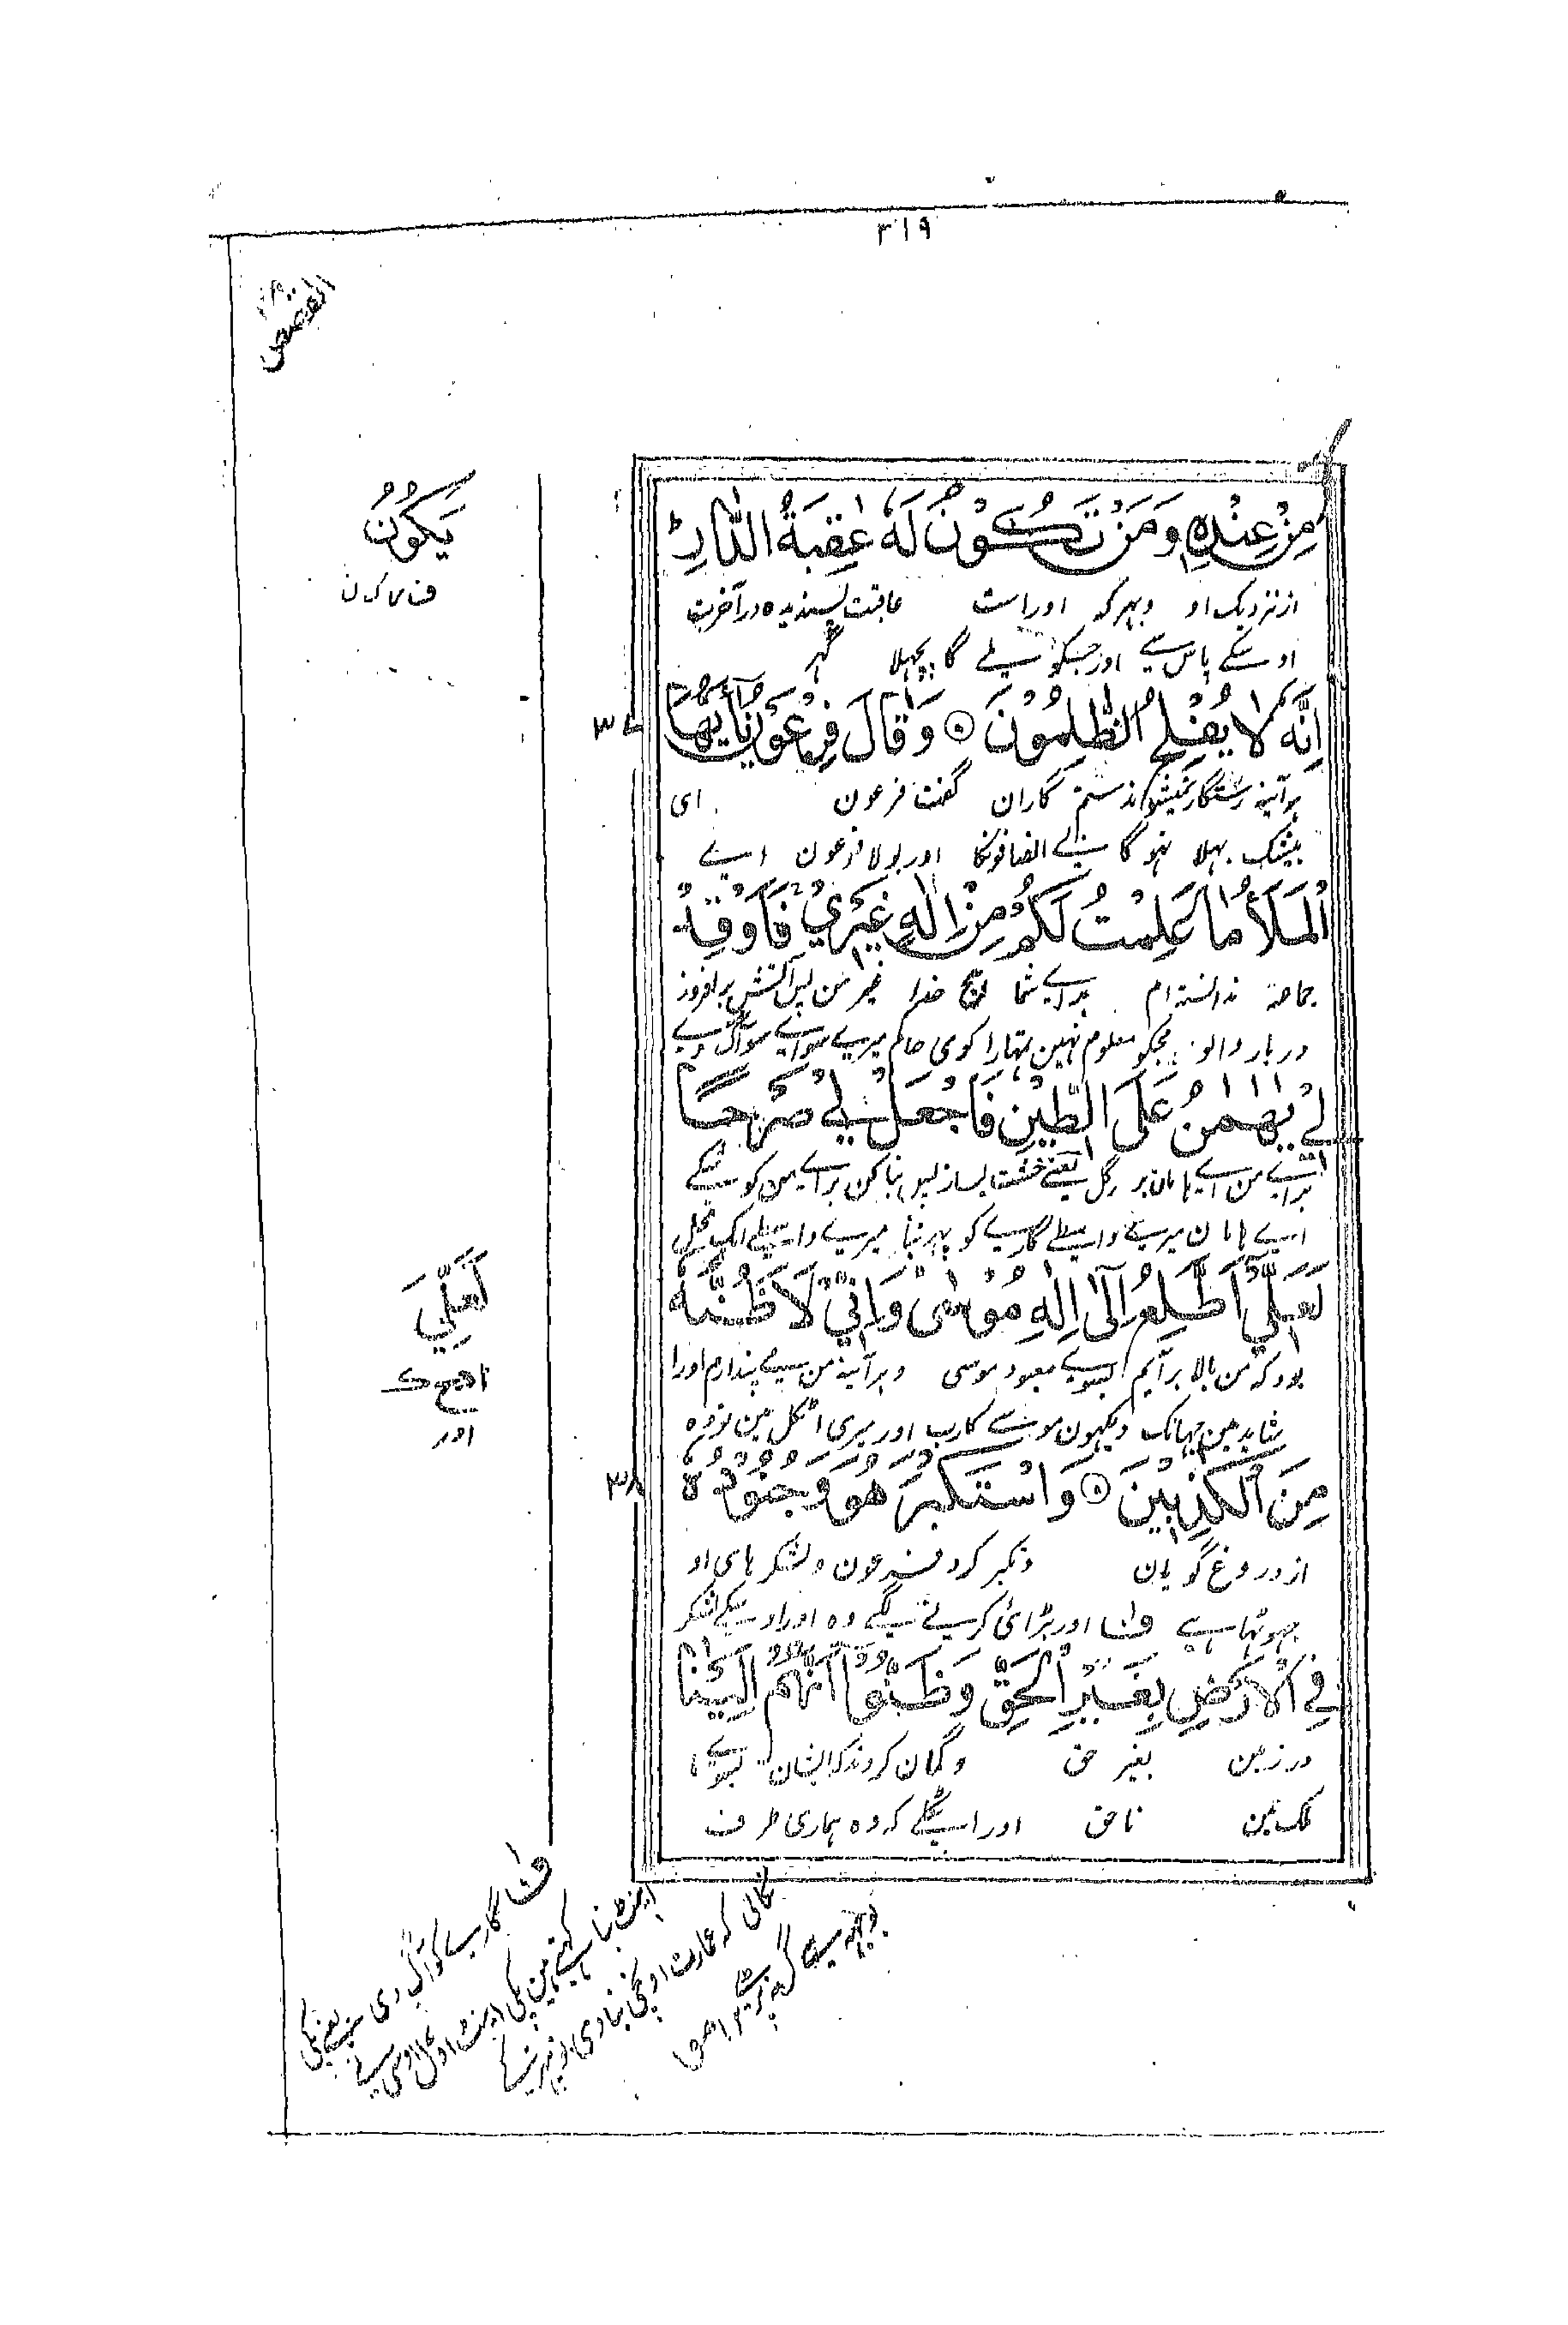 ٣١٩
القصص
مِنْ عِنْدِهٖ وَمَنْ تَكُوْنُ لَهٗ عٰقِبَةُ الدَّارِ ط
از نزدیک او وبہر کہ اوراست عاقبت پسندیدہ در آخرت
اوسکے پاس سے اور جسکو ملے گا پچھلا گھر
اِنَّهٗ لَا يُفْلِحُ الظّٰلِمُوْنَ ۝ وَقَالَ فِرْعَوْنُ يٰٓاَيُّهَا
٣٧
ہر آئینہ رستگار نمیشوند ستم گاران گفت فرعون ای
بیشک بہلا نہو گا بے انصافونکا اور بولا فرعون اے
الْمَلَاُ مَا عَلِمْتُ لَكُمْ مِنْ اِلٰهٍ غَيْرِيْ فَاَوْقِدْ
جماعۃ ندانستہ ام برای شما ہیچ خدا غیر من پس آتش برافروز
دربار والو مجکو معلوم نہین تمہارا کوی حاکم میرے سواے سو آگ دے
لِيْ يٰهَامٰنُ عَلَى الطِّيْنِ فَاجْعَلْ لِيْ صَرْحًا
برای من اے ہامان بر گل یعنے خشت بساز پس بنا کن براے من کوشکے
اے ہامان میرے واسطے گارے کو پہر بنا میرے واسطے ایک محل
لَعَلِّيْٓ اَطَّلِعُ اِلٰٓى اِلٰهِ مُوْسٰى وَاِنِّيْ لَاَظُنُّهٗ
بود کہ من بالا برآیم بسوے معبود موسی وہر آئینہ من مے پندارم اورا
شاید مین جہانک دیکہون موسے کا رب اور میری اٹکل مین تو وہ
مِنَ الْكٰذِبِيْنَ ۝ وَاسْتَكْبَرَ هُوَ وَجُنُوْدُهٗ
٣٨
از دروغ گویان وتکبر کرد فرعون ولشکر ہای او
جہوٹہا ہے ف اور بڑائی کرنے لگے وہ اور اوسکے لشکر
فِي الْاَرْضِ بِغَيْرِ الْحَقِّ وَظَنُّوْٓا اَنَّهُمْ اِلَيْنَا
در زمین بغیر حق وگمان کردند کہ ایشان بسوے
ملک مین ناحق اور اٹکلے کہ وہ ہماری طرف
يَكُوْنُ
لَعَلِّيَ
ف گارے کو آگ دی یعنے پکی
اینٹ بنا کہتے ہین پکی اینٹ اول اوسی نے
نکالی کہ عمارت اونچی بنادی تو پتہر کے
بوجہہ سے گر نہ پڑے